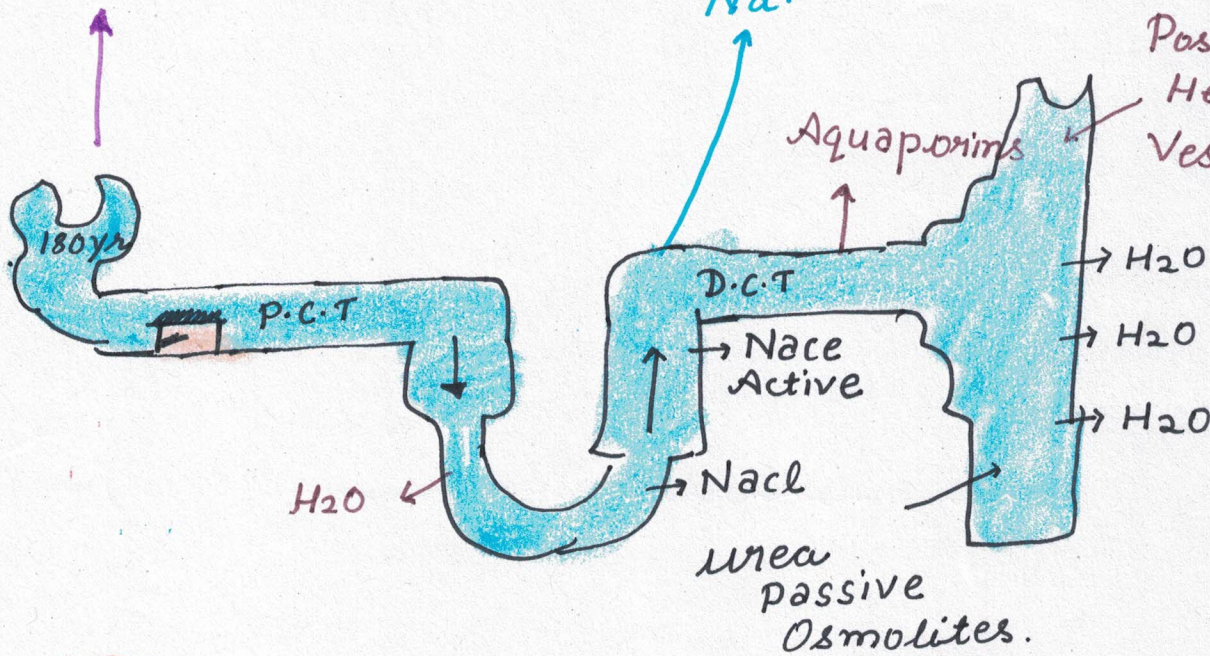 Na+
Pos
He
Ves
Aquaporins
180 yr
P.C.T
D.C.T
H2O
H2O
H2O
Nace
Active
Nacl
H2O
urea
passive
Osmolites.